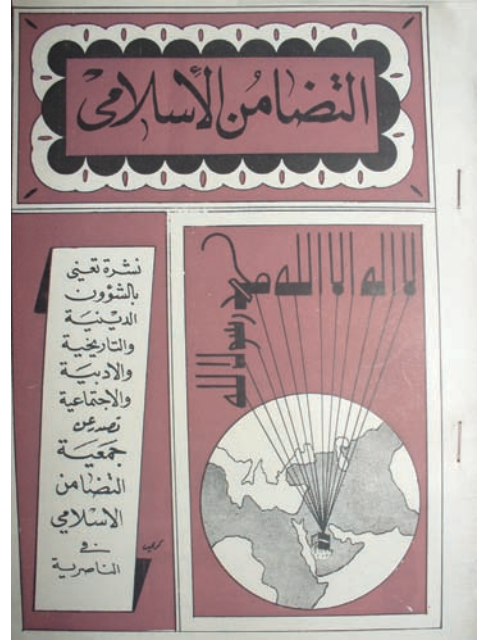 التضامن الإسلامي
لا اله الا الله محمد رسول الله
نشرة تعنى
بالشؤون
الدينية
والتاريخية
والادبية
والاجتماعية
تصدر عن
جمعية
التضامن
الاسلامي
في
الناصرية